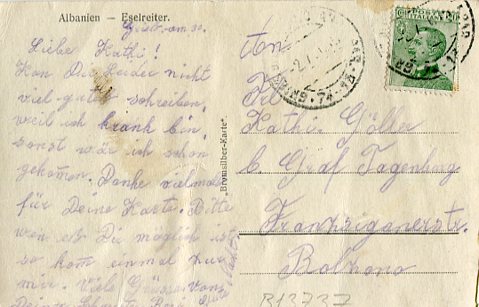 Albanien – Eselreiter.
am 30.
Liebe Kathi!
Kan Dir leider nicht
viel gutes schreiben,
weil ich krank bin,
sonst wär ich schon
gekomen. Danke vielmals
für Deine Karte. Bitte
wen es Dir möglich ist
so kom einmal zu
mir. Viele Grüsse von
Deiner
"Bromsilber-Karte"
An
Frl.
Kathi
b. Graf
Franzsiganerstr.
Bolzano
R12727